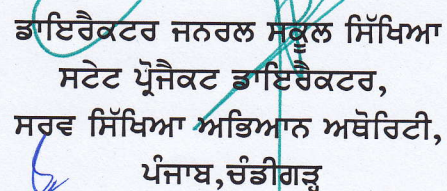 ਡਾਇਰੈਕਟਰ ਜਨਰਲ ਸਕੂਲ ਸਿੱਖਿਆ
ਸਟੇਟ ਪ੍ਰੋਜੈਕਟ ਡਾਇਰੈਕਟਰ,
ਸਰਵ ਸਿੱਖਿਆ ਅਭਿਆਨ ਅਥੋਰਿਟੀ,
ਪੰਜਾਬ,ਚੰਡੀਗੜ੍ਹ